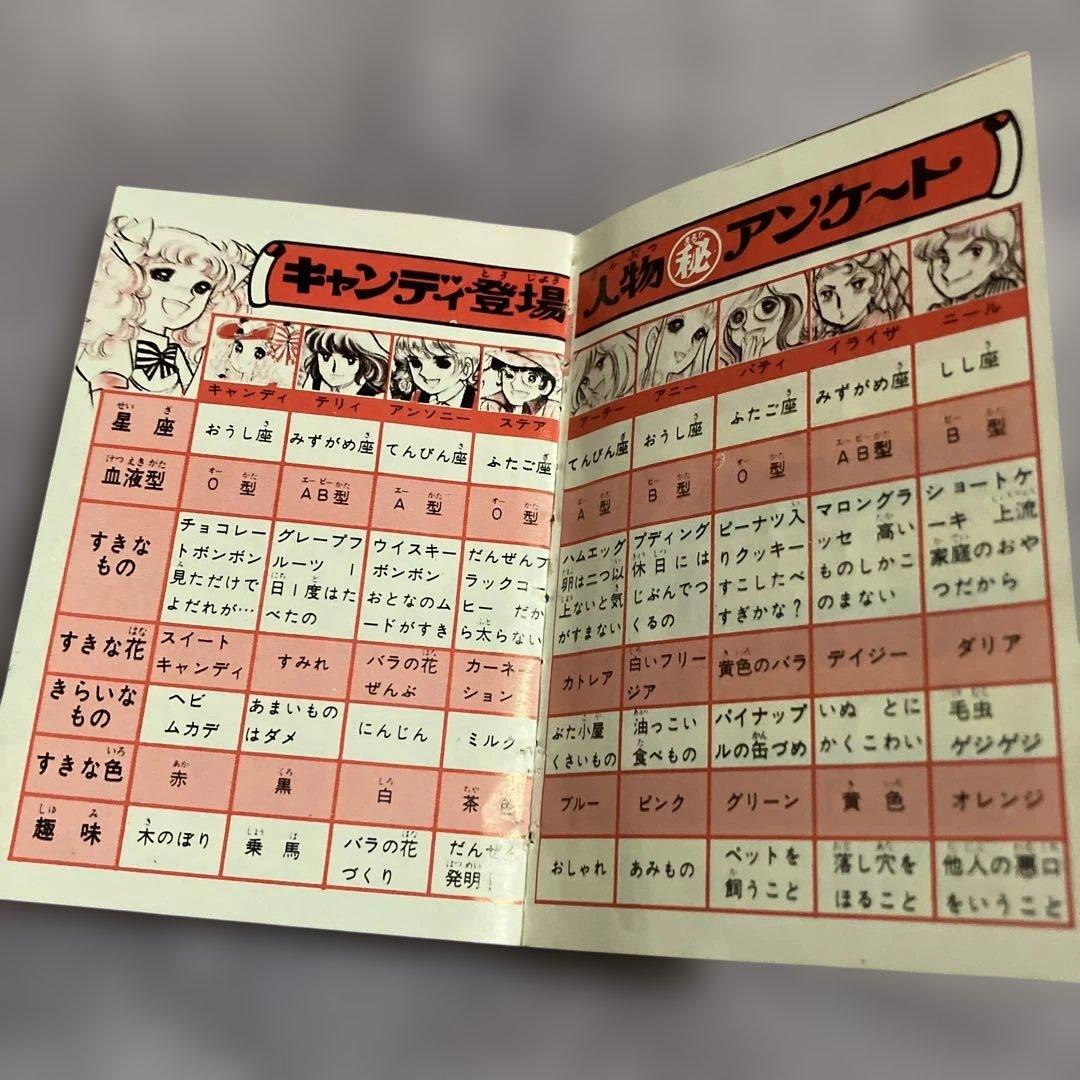 キャンディ登場人物㊙アンケート
キャンディ テリィ アンソニー ステア アーチー アニー パティ イライザ ニール
星座 おうし座 みずがめ座 てんびん座 ふたご座 てんびん座 おうし座 ふたご座 みずがめ座 しし座
血液型 O型 AB型 A型 O型 A型 B型 O型 AB型 B型
すきなもの
チョコレートボンボン見ただけでよだれが…
グレープフルーツ 一日一度はたべたの
ウイスキーボンボン おとなのムードがすき
だんぜんブラックコーヒー だから太らない
ハムエッグ 卵は二つ以上ないと気がすまない
プディング 休日にはじぶんでつくるの
ピーナツ入りクッキー すこしたべすぎかな?
マロングラッセ 高いものしかこのまない
ショートケーキ 上流家庭のおやつだから
すきな花 スイートキャンディ すみれ バラの花ぜんぶ カーネーション カトレア 白いフリージア 黄色のバラ デイジー ダリア
きらいなもの ヘビ ムカデ あまいものはダメ にんじん ミルク ぶた小屋 くさいもの 油っこい食べもの パイナップルの缶づめ いぬ とにかくこわい 毛虫 ゲジゲジ
すきな色 赤 黒 白 茶色 ブルー ピンク グリーン 黄色 オレンジ
趣味 木のぼり 乗馬 バラの花づくり だんぜん発明! おしゃれ あみもの ペットを飼うこと 落し穴をほること 他人の悪口をいうこと